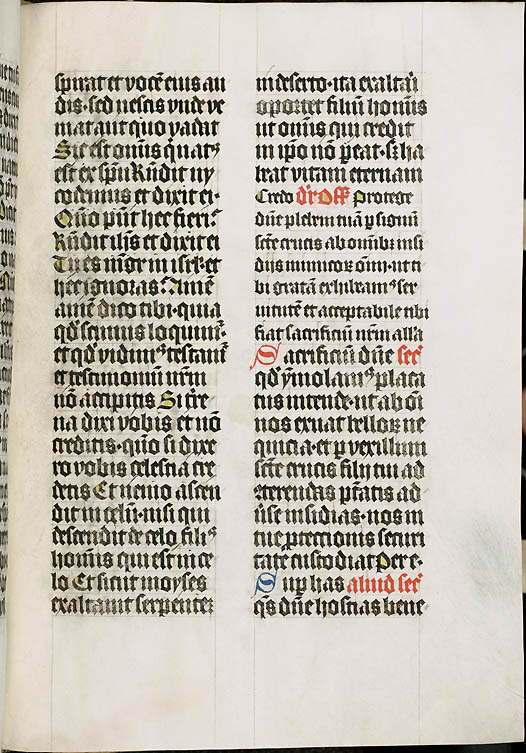 spirat et vocē eius au
dis · sed nescis vnde ve
niat aut quo vadat
Sic est om̄is q̄ natꝰ
est ex sp̄u Rn̄dit ny
codemus et dixit ei ·
Quō pn̄t hec fieri ·
Rn̄dit ih̄s et dixit ei
Tu es mḡr in isrl̄ · et
hec ignoras · Amē
amē dico tibi · quia
qd̄ scimus loquimꝰ ·
et qd̄ vidimꝰ testamꝰ
et testimoniū nr̄m
nō accipitis Si t̄re
na dixi vobis et nō
creditis · quō si dixe
ro vobis celestia cre
detis Et nemo ascen
dit in celū · nisi qui
descendit de celo filiꝰ
hoīnis qui est in ce
lo Et sicut moyses
exaltauit serpentez
in deserto · ita exaltari
oportet filiū hoīnis
ut om̄is qui credit
in ip̄o nō p̄eat · sꝫ ha
beat vitam eternam
Credo d'r Off̄ Protege
dn̄e plebem tuā p̱ signū
sc̄te crucis ab om̄ibꝫ insi
dijs inimicoꝝ oīm · ut ti
bi gratā exhibeamꝰ ser
uitutē et acceptabile tibi
fiat sacrificiū nr̄m alla
Sacrificiū dn̄e sec̄
qd̄ ȳmolamꝰ placa
tus intende · ut ab oī
nos exuat belloꝝ ne
quicia · et p̱ vexillum
sc̄te crucis filij tui ad
ꝯterendas ptātis ad
ūse insidias · nos in
tue ptectionis securi
tate custodiat Per e ·
Sup has aliud sec̄
qs̄ dn̄e hostias bene